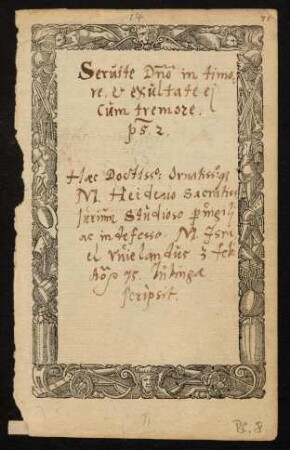 14
Seruite Dño in timo
re. & exultate ej
Cum tremore.
ps. 2.
Hæc Doctissº: Ornatissºq̃
M. Heideno Sacratiss
Jurium Studioso
ac indefesso. M. Isra
el Wielandus 3 feb
Aõ 75. Tubingæ
scripsit.
Ps. 8